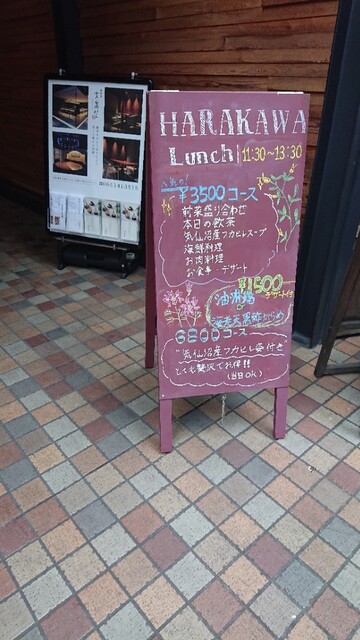 HARAKAWA
Lunch 11:30~13:30
人気!
¥3500コース
前菜盛り合わせ
本日の飲茶
気仙沼産フカヒレスープ
海鮮料理
お肉料理
お食事・デザート
¥1500
デザート付
油淋鶏
or
海老天黒酢がらめ
6800コース
"気仙沼産フカヒレ姿付き
とても贅沢でお得!!
(当日OK)